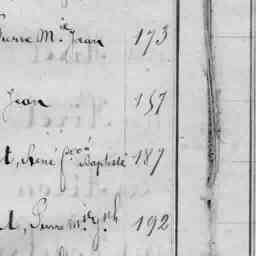 Pierre M.ie Jean 173
Jean 157
t, René f.çois Baptiste 187
t, Pierre M.ie J.ph 192